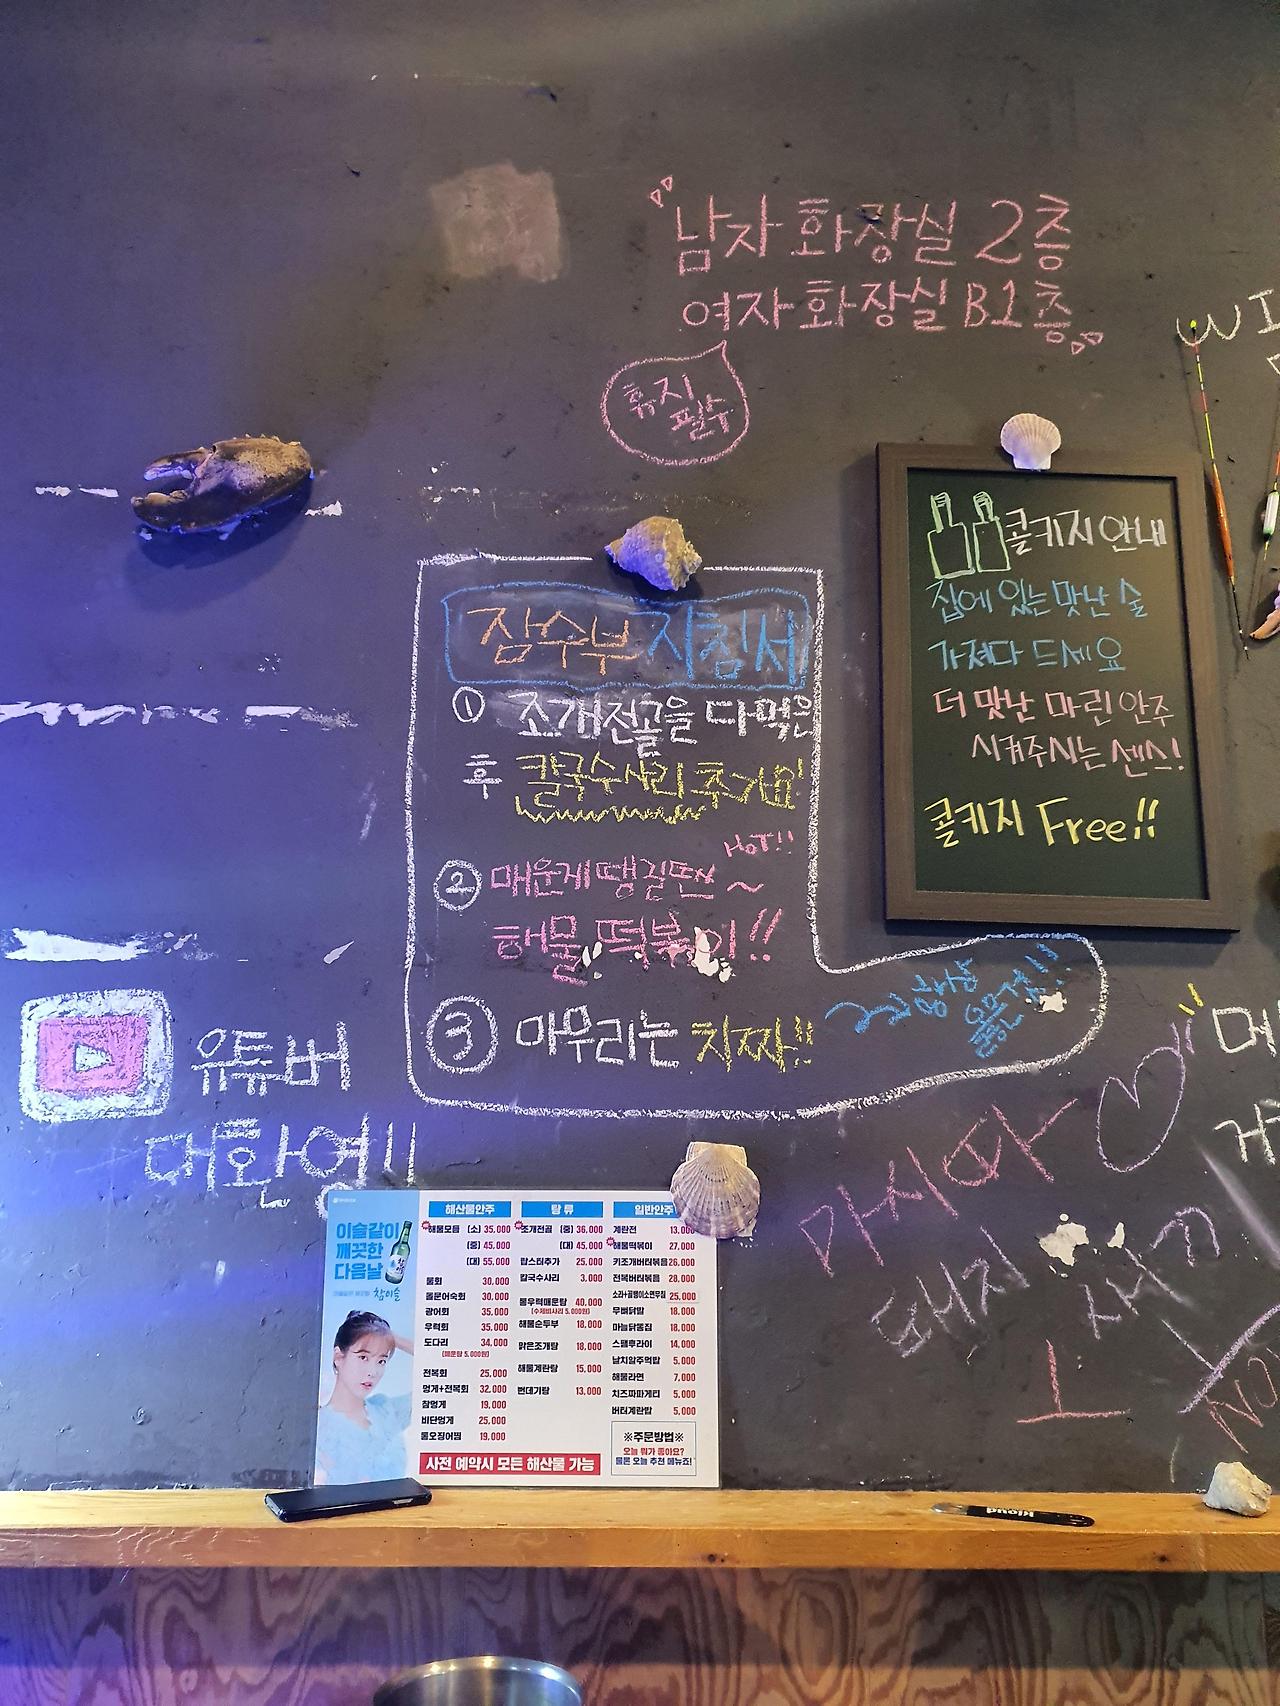 남자 화장실 2층
여자 화장실 B1층
휴지
필수
콜키지 안내
집에 있는 맛난 술
가져다 드세요
더 맛난 마린 안주
시켜주시는 센스!
콜키지 Free!!
잠수부 지침서
① 조개전골을 다 먹은
후 칼국수사리 추가요!
② 매운게 땡길 땐 ~ HOT!!
해물 떡볶이!!
③ 마무리는 치짜!!
유튜버
대환영!!
마시따
돼지
NO
이슬같이
깨끗한
다음날
참이슬
해산물안주
해물모듬 (소) 35,000
(중) 45,000
(대) 55,000
물회 30,000
돌문어숙회 30,000
광어회 35,000
우럭회 35,000
도다리 34,000
(매운탕 5,000원)
전복회 25,000
멍게+전복회 32,000
참멍게 19,000
비단멍게 25,000
통오징어찜 19,000
탕 류
조개전골 (중) 36,000
(대) 45,000
랍스터추가 25,000
칼국수사리 3,000
통우럭매운탕 40,000
(수제비사리 5,000원)
해물순두부 18,000
맑은조개탕 18,000
해물계란탕 15,000
번데기탕 13,000
일반안주
계란전 13,000
해물떡볶이 27,000
키조개버터볶음 26,000
전복버터볶음 28,000
소라+골뱅이소면무침 25,000
무뼈닭발 18,000
마늘닭똥집 18,000
스팸후라이 14,000
날치알주먹밥 5,000
해물라면 7,000
치즈짜파게티 5,000
버터계란밥 5,000
※주문방법※
오늘 뭐가 좋아요?
물론 오늘 추천 메뉴죠!
사전 예약시 모든 해산물 가능
Kloud